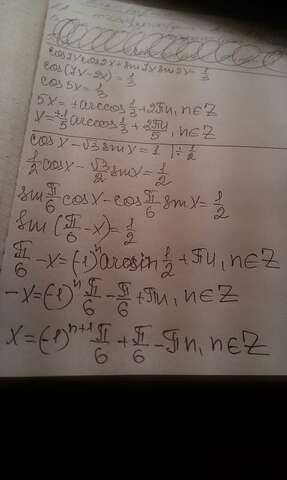 cos7xcos2x+sin7xsin2x=1/3
cos(7x-2x)=1/3
cos5x=1/3
5x=±arccos 1/3+2πn, n∈Z
x=±1/5 arccos 1/3+2πn/5, n∈Z
cosx-√3sinx=1 |÷1/2
1/2cosx-√3/2sinx=1/2
sin π/6 cosx-cos π/6 sinx=1/2
sin(π/6-x)=1/2
π/6-x=(-1)ⁿarcsin 1/2+πn, n∈Z
-x=(-1)ⁿ π/6-π/6+πn, n∈Z
x=(-1)ⁿ⁺¹ π/6+π/6-πn, n∈Z